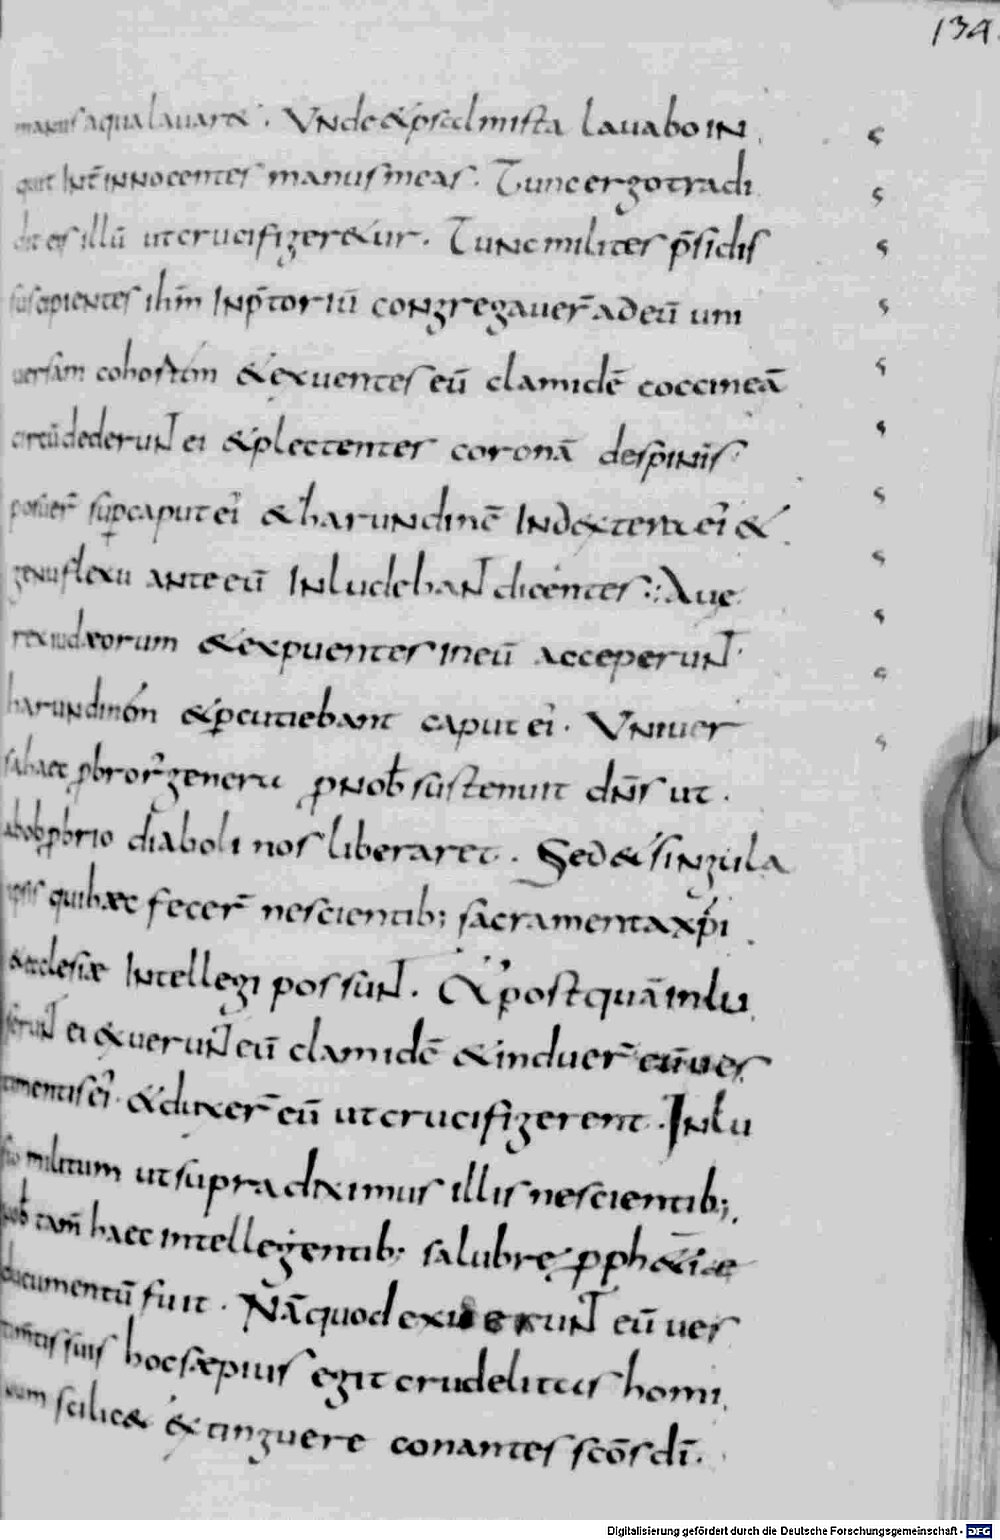 134
manus aqua lauar& . Vnde & psalmista lauabo in
quit Inť innocentes manus meas. Tunc ergo tradi
dit eis illū ut crucifiger&ur. Tunc milites p̄sidis
suscipientes ihm̄ Inp̄toriū congregauer̄ ad eū uni
uersam cohortem & exuentes eū clamidē coccineā
circūdederunt ei & plectentes coronā de spinis
posuer̄ sup caput ei' & harundinē In dextera ei' &
genu flexu ante eū Inludebant dicentes: Aue
rex iudæorum & expuentes in eū acceperunt
harundinem & ꝑcutiebant caput ei'. Vniuer
sa haec ꝓbrorꝝ genera ꝓ nob̄ sustenuit dn̄s ut .
ab obꝓbrio diaboli nos liberaret . Sed & singula
ipsis qui hæc fecer̄ nescientib; sacramenta xp̄i
& ecclesiæ Intellegi possunt . & postquā inlu
serunt ei exuerunt eū clamidē & induer̄ eū ues
timentis ei' . & duxer̄ eū ut crucifigerent . Inlu
sio militum ut supra diximus illis nescientib;
nob̄ tam̄ haec intellegentib; salubre ꝓph&iæ
documentū fuit . Nā quod exuerunt eū ues
tim̄tis suis hoc sæpius egit crudelitas homi
num scilic& extinguere conantes sc̄os dī .
Digitalisierung gefördert durch die Deutsche Forschungsgemeinschaft - DFG